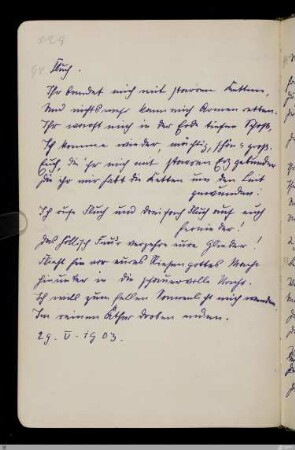 Fluch.
Ihr bandet mich mit starren Ketten,
Und nichts mehr kann mich Armen retten.
Ihr warft mich in der Erde tiefen Schoß,
Ich komme wieder, mächtig, schön & groß.
Euch, die ihr mich mit schwerem Erz gebunden
Die ihr mir habt die Ketten um den Leib
gewunden:
Ich rufe Fluch und dreifach Fluch auf euch
hernieder!
Das höllisch Feur verzehre eure Glieder!
Flieht hin vor eures Riesengottes Macht
Hinunter in die schauervolle Nacht.
Ich will zum hellen Sonnenlicht mich wenden
Im reinen Äther droben enden.
29. V. 1903.